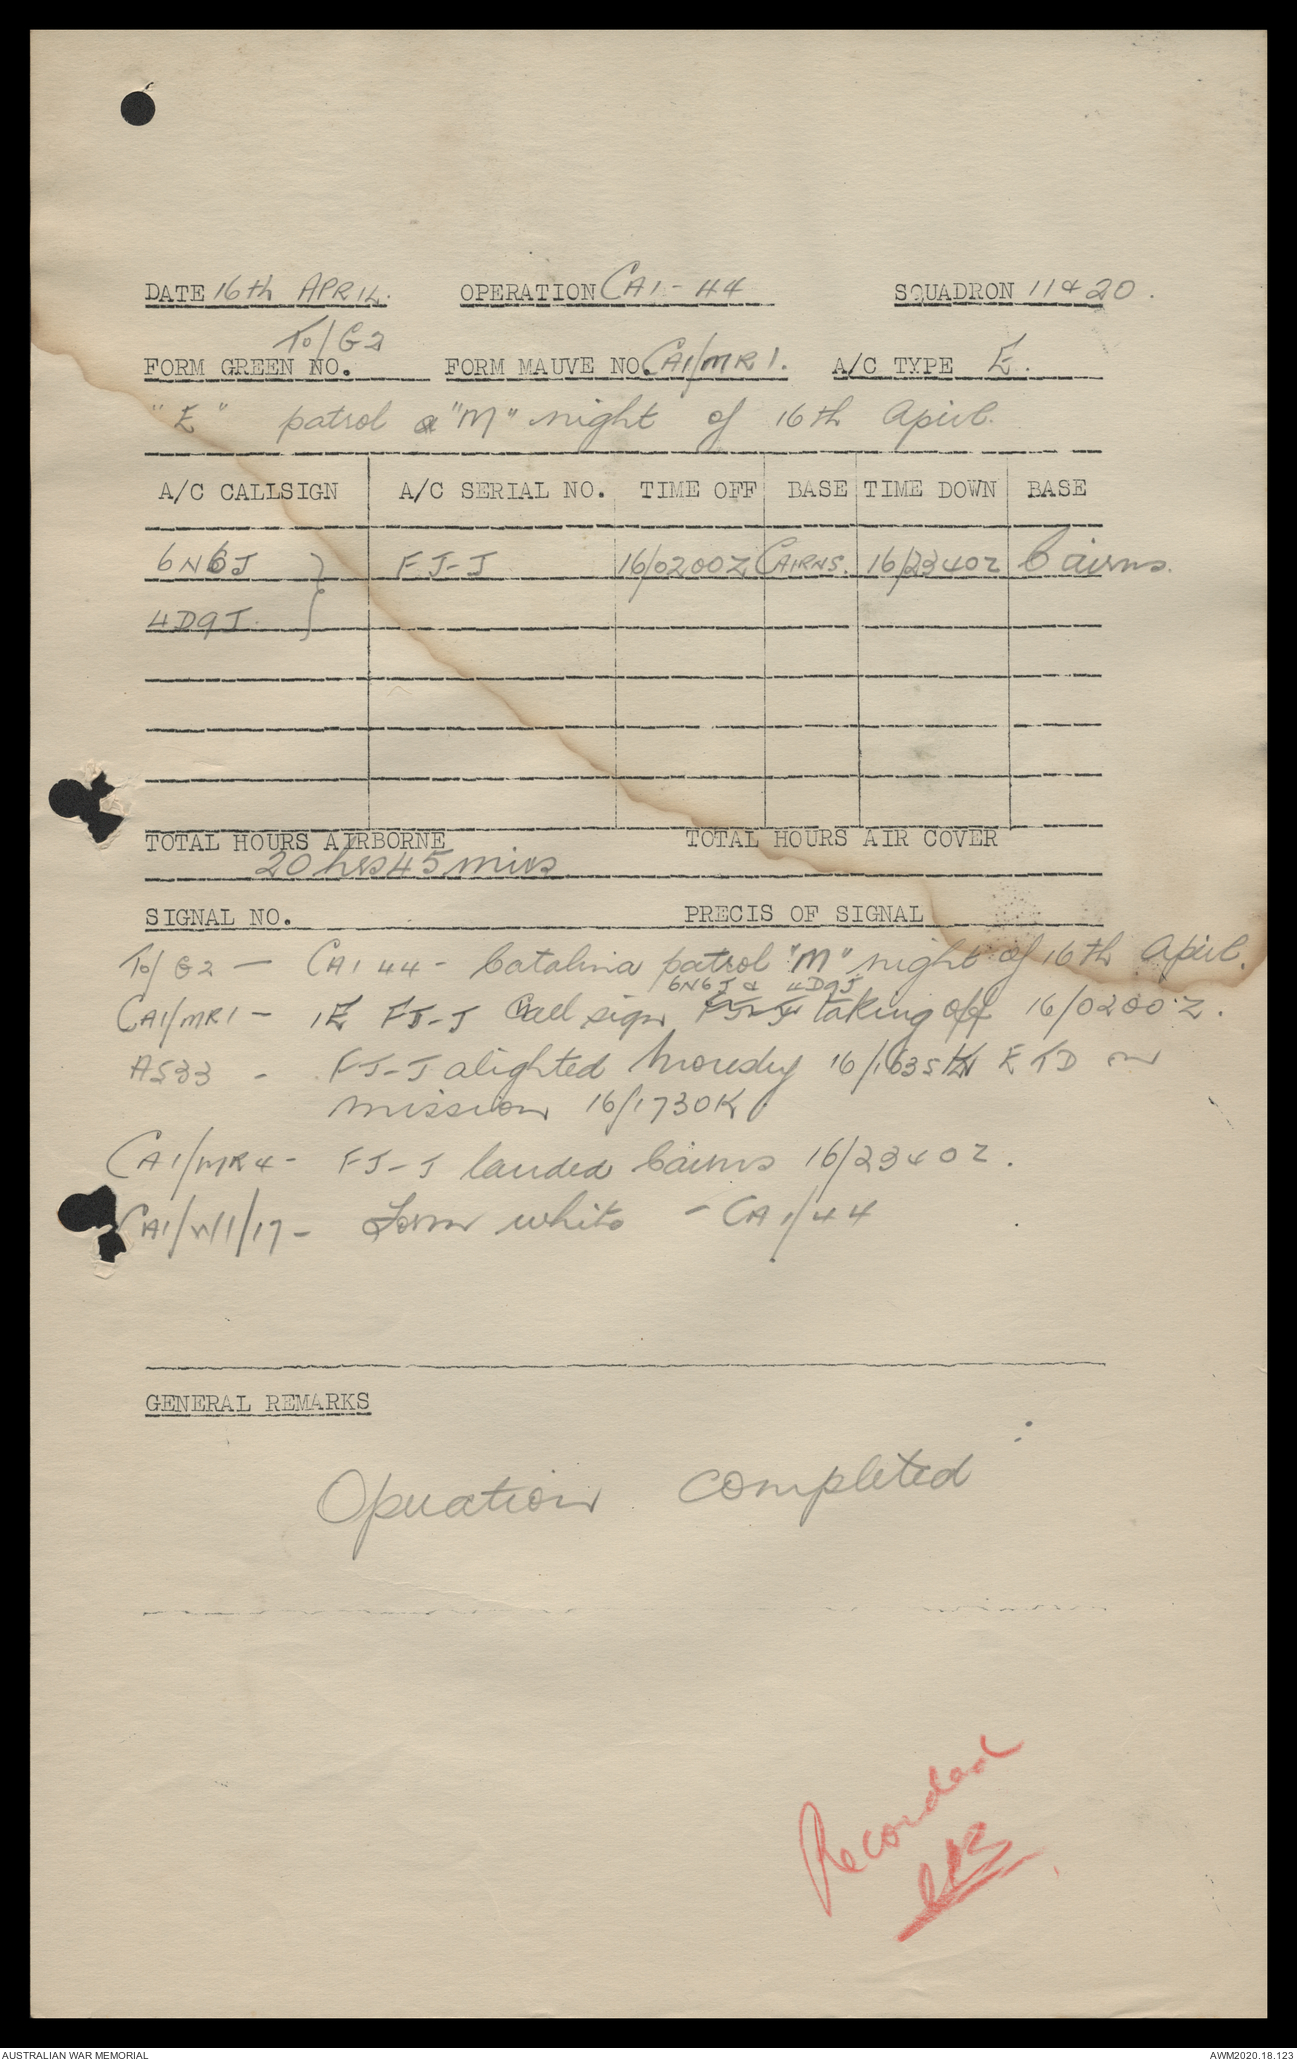 DATE 16th APRIL. OPERATION CA1-44 SQUADRON 11 & 20.
FORM GREEN NO. To/G2 FORM MAUVE NO. CA1/MR1. A/C TYPE E.
"E" patrol a "M" night of 16th April.
A/C CALLSIGN A/C SERIAL NO. TIME OFF BASE TIME DOWN BASE
6N6J } FJ-J 16/0200Z CAIRNS. 16/2340Z Cairns.
4D9J.
TOTAL HOURS AIRBORNE TOTAL HOURS AIR COVER
20 hrs 45 mins
SIGNAL NO. PRECIS OF SIGNAL
To/G2 - CA1 44 - Catalina patrol "M" night of 16th April.
6N6J & 4D9J
CA1/MR1 - 1E FJ-J Call sign FJ-J taking off 16/0200Z.
AS33 - FJ-J alighted Moresby 16/1635K ETD on
mission 16/1730K
CA1/MR4 - FJ-J landed Cairns 16/2340Z.
CA1/W1/17 - Form white - CA1/44
GENERAL REMARKS
Operation completed
Recorded
AUSTRALIAN WAR MEMORIAL AWM2020.18.123